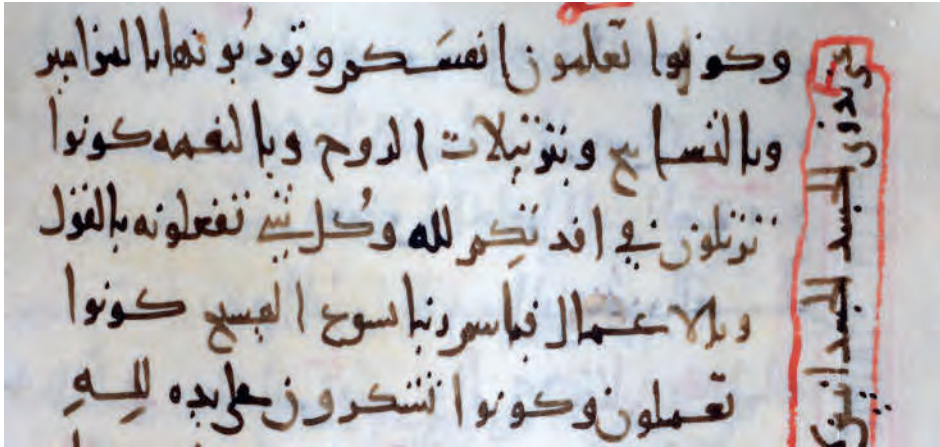 وكونوا تعلمون انفسكم وتودبونها بالمزامير
وبالتسابيح وبترتيلات الروح وبالنغمه كونوا
ترتلون في افدتكم لله وكل شي تفعلونه بالقول
وبالاعمال فباسم ربنا يسوع المسيح كونوا
تعملون وكونوا تشكرون على يده لله
الجسد الجسداني